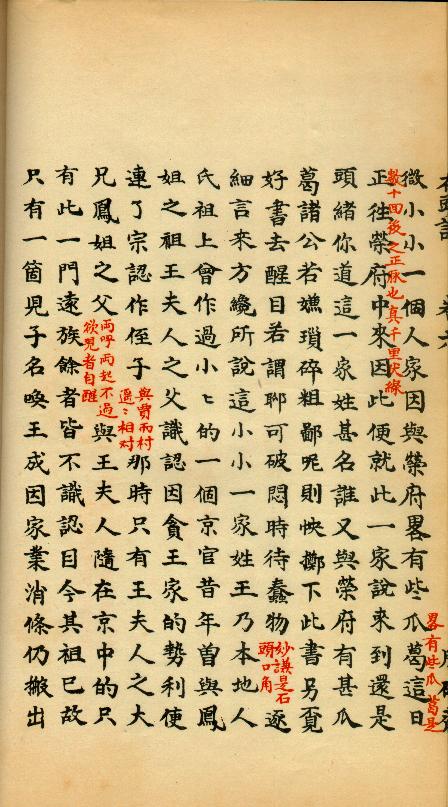 微小小一個人家因與榮府畧有些瓜葛這日
正徃榮府中來因此便就此一家說來到還是
數十回後之正脉也真千里伏線
畧有些瓜葛是
頭緒你道這一家姓甚名誰又與榮府有甚瓜
葛諸公若嫌瑣碎粗鄙呢則怏擲下此書另覔
好書去醒目若謂聊可破悶時待蠢物
妙謙是石頭口角
逐
細言來方纔所說這小小一家姓王乃本地人
氏祖上曾作過小〻的一個京官昔年曽與鳳
姐之祖王夫人之父識認因貪王家的勢利便
連了宗認作侄子
與賈雨村遥〻相对
那時只有王夫人之大
兄鳳姐之父
兩呼兩起不過欲觀者自醒
與王夫人隨在京中的只
有此一門遠族餘者皆不識認目今其祖已故
只有一箇児子名喚王成因家業消條仍搬出